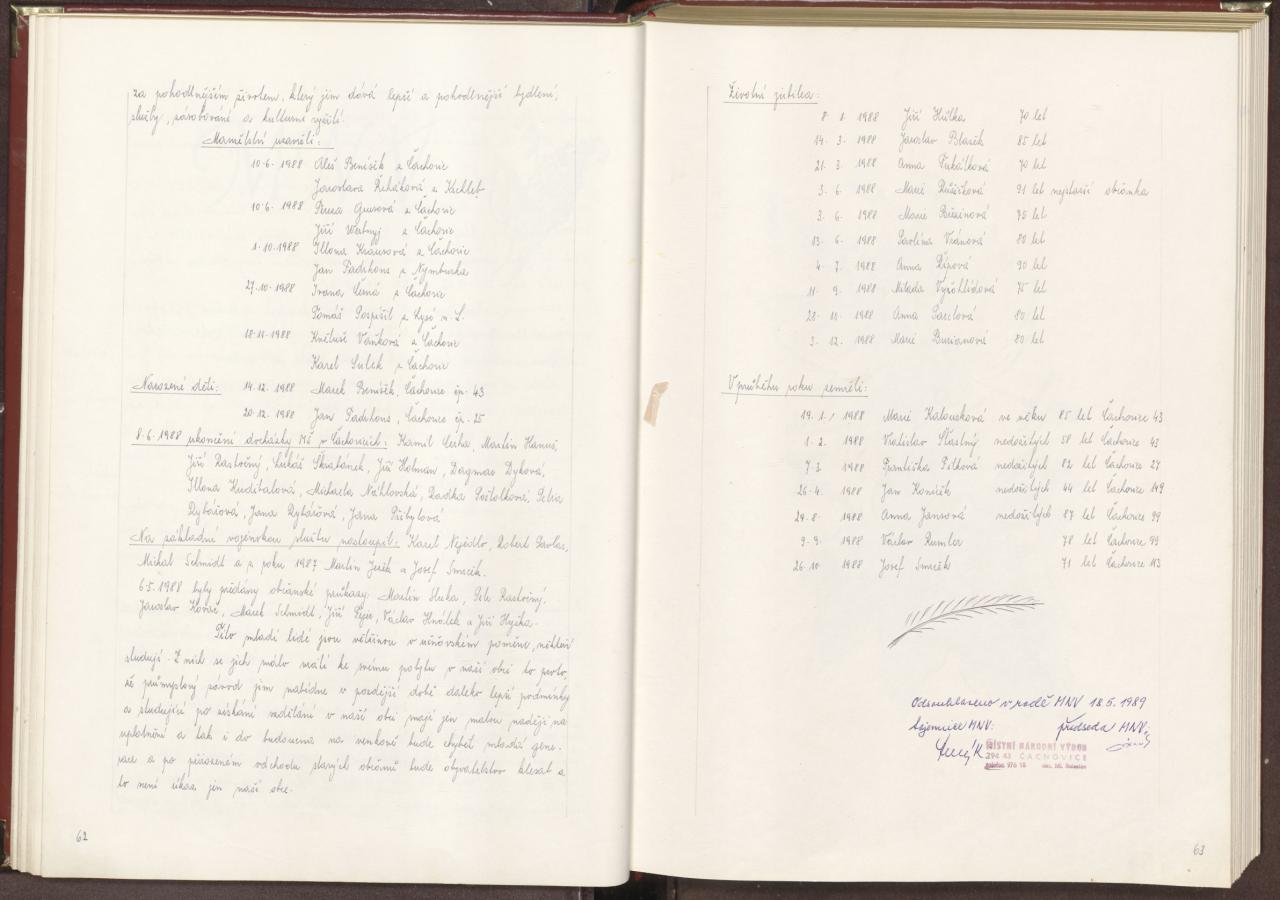 za pohodlnějším životem, který jim dává lepší a pohodlnější bydlení,
služby, zásobování a kulturní vyžití.
Manželství uzavřeli:
10.6.1988 Aleš Benišek z Čachovic
Jaroslava Řeháková z
10.6.1988 Gurová z Čachovic
Jiří z Čachovic
1.10.1988 Illona Krausová z Čachovic
Jan Padrhons z Nymburka
27.10.1988 Ivana Černá z Čachovic
Tomáš Pospíšil z Lysé n. L.
18.11.1988 Květuše Vaňková z Čachovic
Karel Sulek z Čachovic
Narozené děti: 14.12.1988 Marek Benišek, Čachovice čp. 43
20.12.1988 Jan Padrhons, Čachovice čp. 25
8.6.1988 ukončení docházky MŠ v Čachovicích: Kamil Martin Hanuš,
Jiří Rastočný, Lukáš Jiří Holman, Dagmar Dyková,
Illona Kuditalová, Michaela Radka Soštolková, Petra
Rybářová, Jana Rybářová, Jana Přibylová
Na základní vojenskou službu nastoupil: Karel Nejedlo, Robert Pavlas,
Michal Schmidt a z roku 1987 Martin Ježek a Josef Smrček.
6.5.1988 byly předány občanské průkazy: Martin Petr Rastočný,
Jaroslav Kovář, Marek Schmidt, Jiří Václav Hnátek a Jiří
Tito mladí lidé jsou většinou v učňovském poměru, někteří
studují. Z nich se jich málo vrátí ke svému pobytu v naší obci to proto,
že průmyslový závod jim nabídne v pozdější době daleko lepší podmínky
a studující po získání vzdělání v naší obci mají jen malou naději na
uplatnění a tak i do budoucna na venkově bude chybět mladá gene-
race a po přirozeném odchodu starých občanů bude obyvatelstvo klesat a
to není úkaz jen naší obce.
62
Životní jubilea:
8. 1. 1988 Jiří Hůlka 70 let
14. 3. 1988 Jaroslav Blažek 85 let
21. 3. 1988 Anna 70 let
3. 6. 1988 Marie Růžičková 91 let nejstarší občanka
3. 6. 1988 Marie Březinová 75 let
13. 6. 1988 Karolína Vránová 80 let
4. 7. 1988 Anna Řípová 90 let
11. 9. 1988 Milada Vyšohlídová 75 let
28. 10. 1988 Anna Šarclová 80 let
3. 12. 1988 Marie Burianová 80 let
V průběhu roku zemřeli:
19. 1. 1988 Marie Kalousková ve věku 85 let Čachovice 43
1. 2. 1988 Vratislav Šťastný nedožitých 58 let Čachovice 43
7. 3. 1988 Františka Pitková nedožitých 82 let Čachovice 27
26. 4. 1988 Jan Koníček nedožitých 44 let Čachovice 149
29. 8. 1988 Anna Jansová nedožitých 87 let Čachovice 99
9. 9. 1988 Václav Rumler 78 let Čachovice 99
26. 10 1988 Josef Smrček 71 let Čachovice 113
Odsouhlaseno v radě MNV 18.5.1989
tajemnice MNV: předseda MNV:
MÍSTNÍ NÁRODNÍ VÝBOR
294 43 ČACHOVICE
telefon 976 18 okr. Ml. Boleslav
63